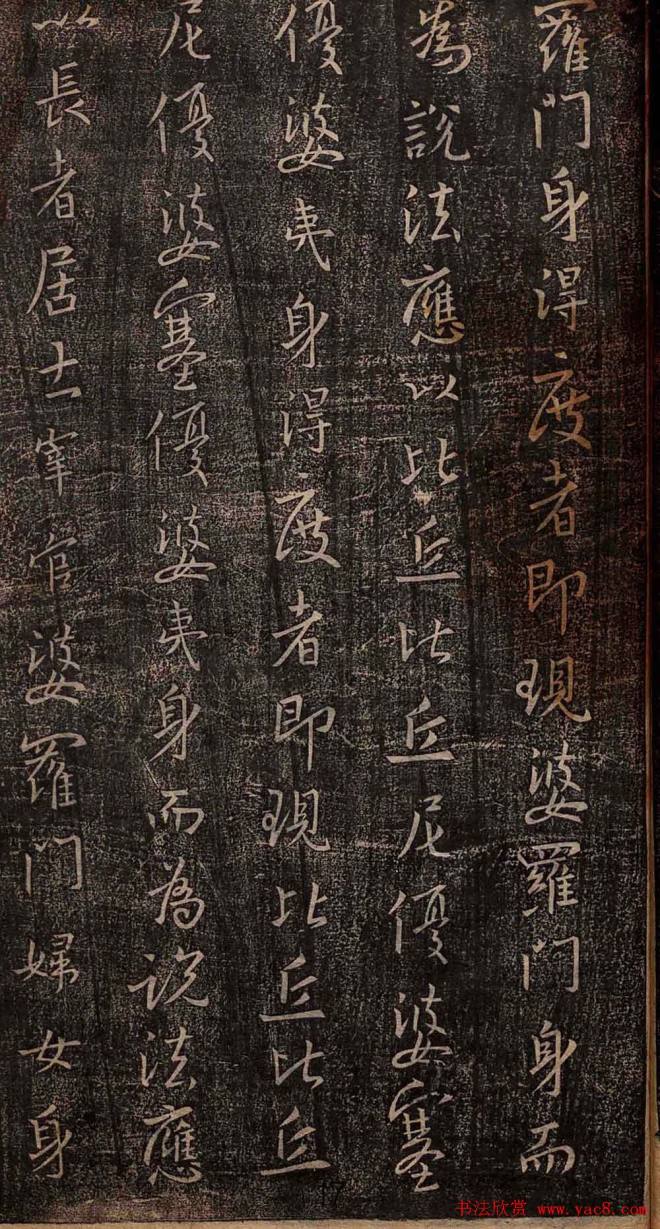 羅門身得度者即現婆羅門身而
為說法應以比丘比丘尼優婆塞
優婆夷身得度者即現比丘比丘
尼優婆塞優婆夷身而為說法應
以長者居士宰官婆羅門婦女身
书法欣赏 www.yac8.com